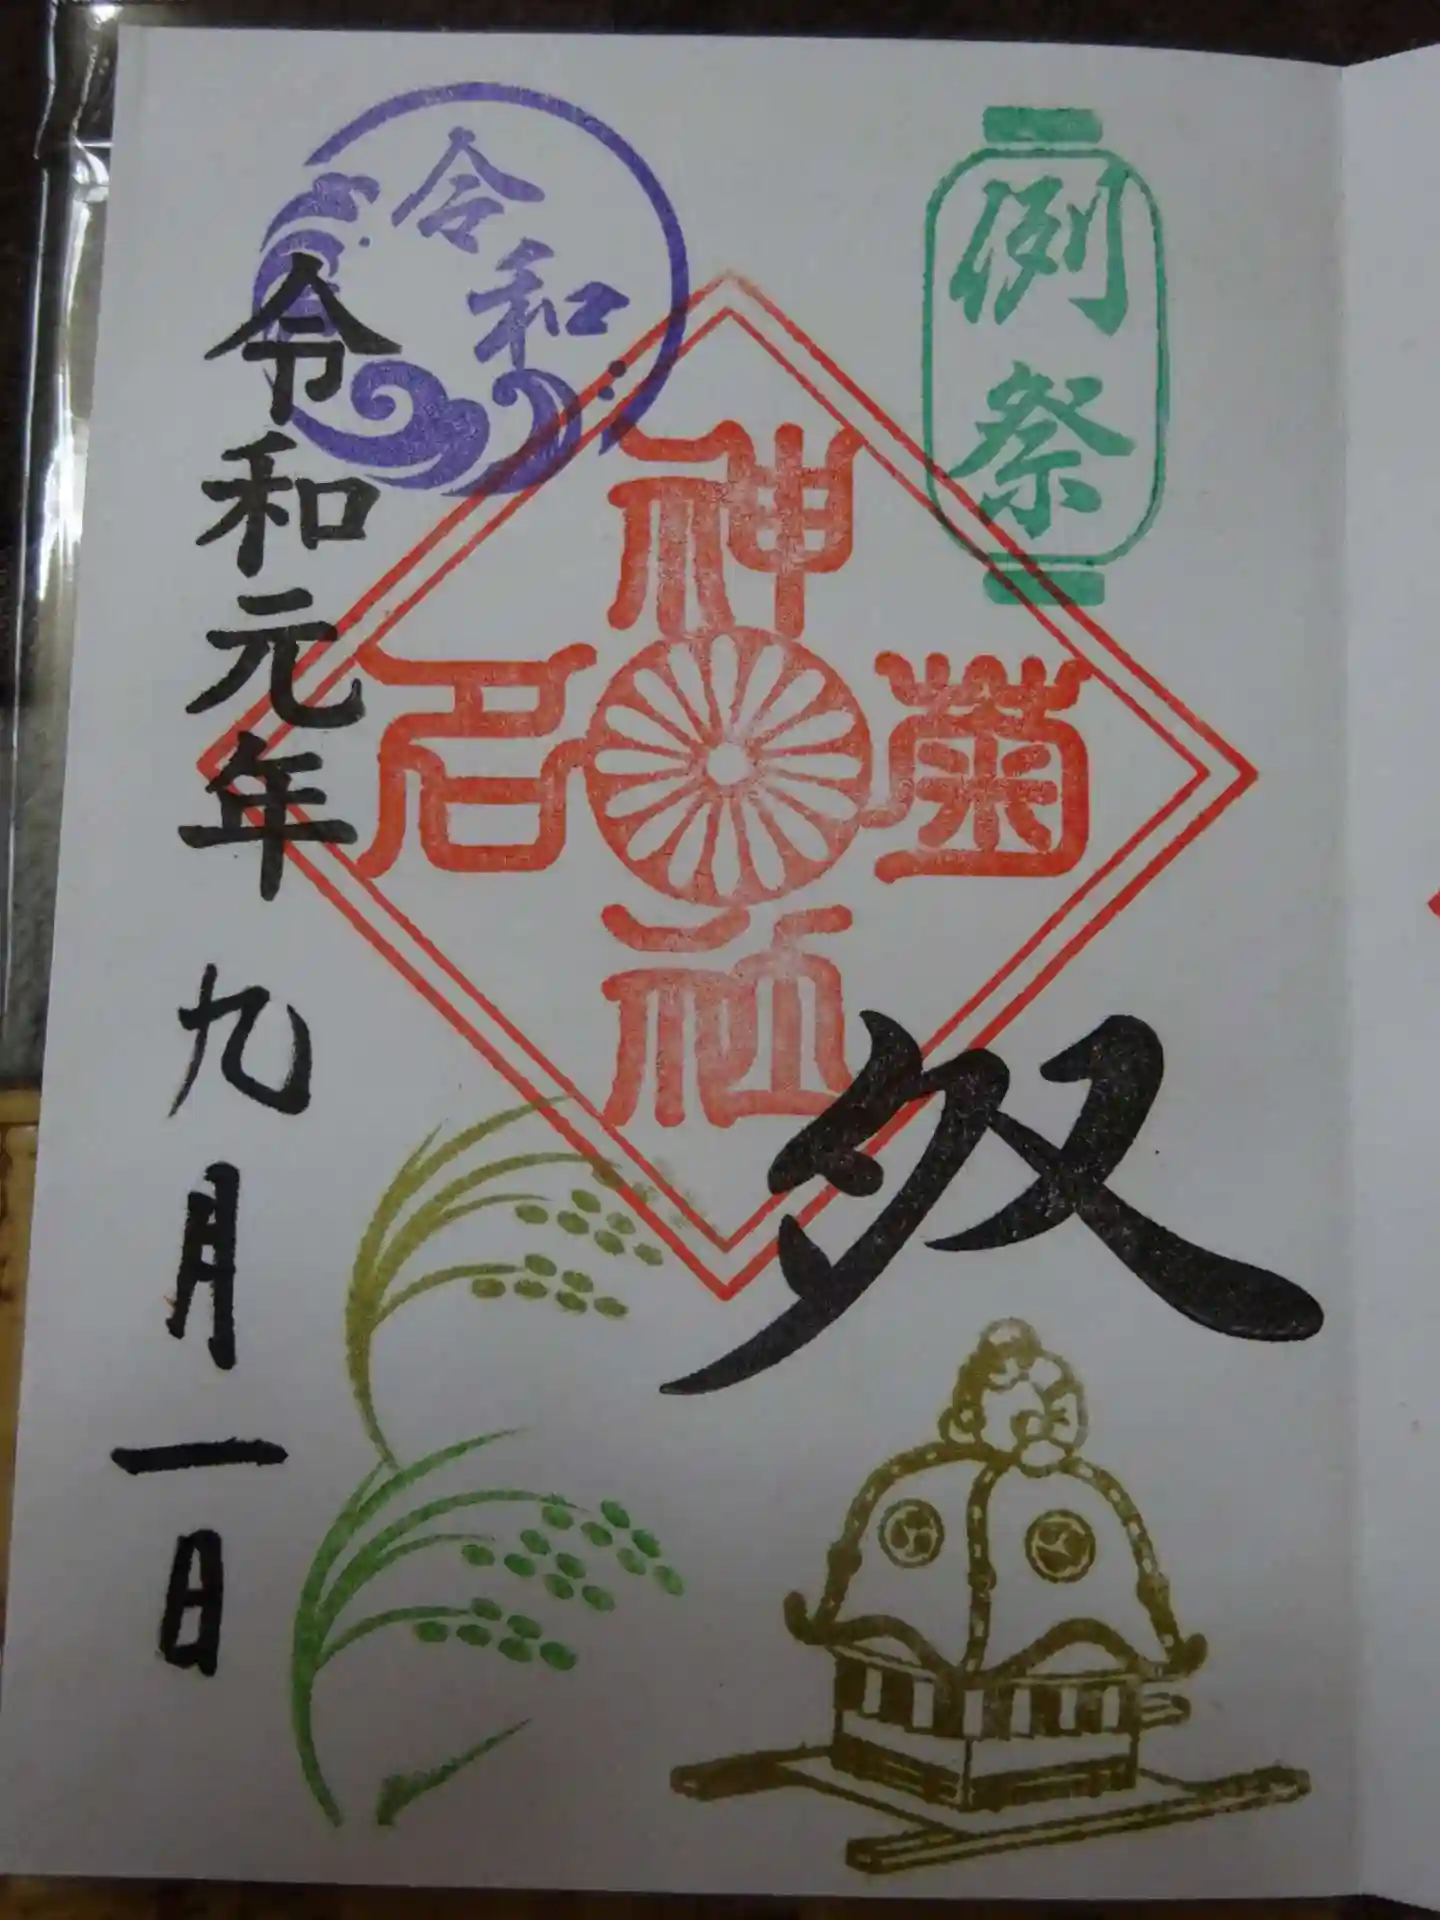 例祭
菊名神社
令和
令和元年九月一日